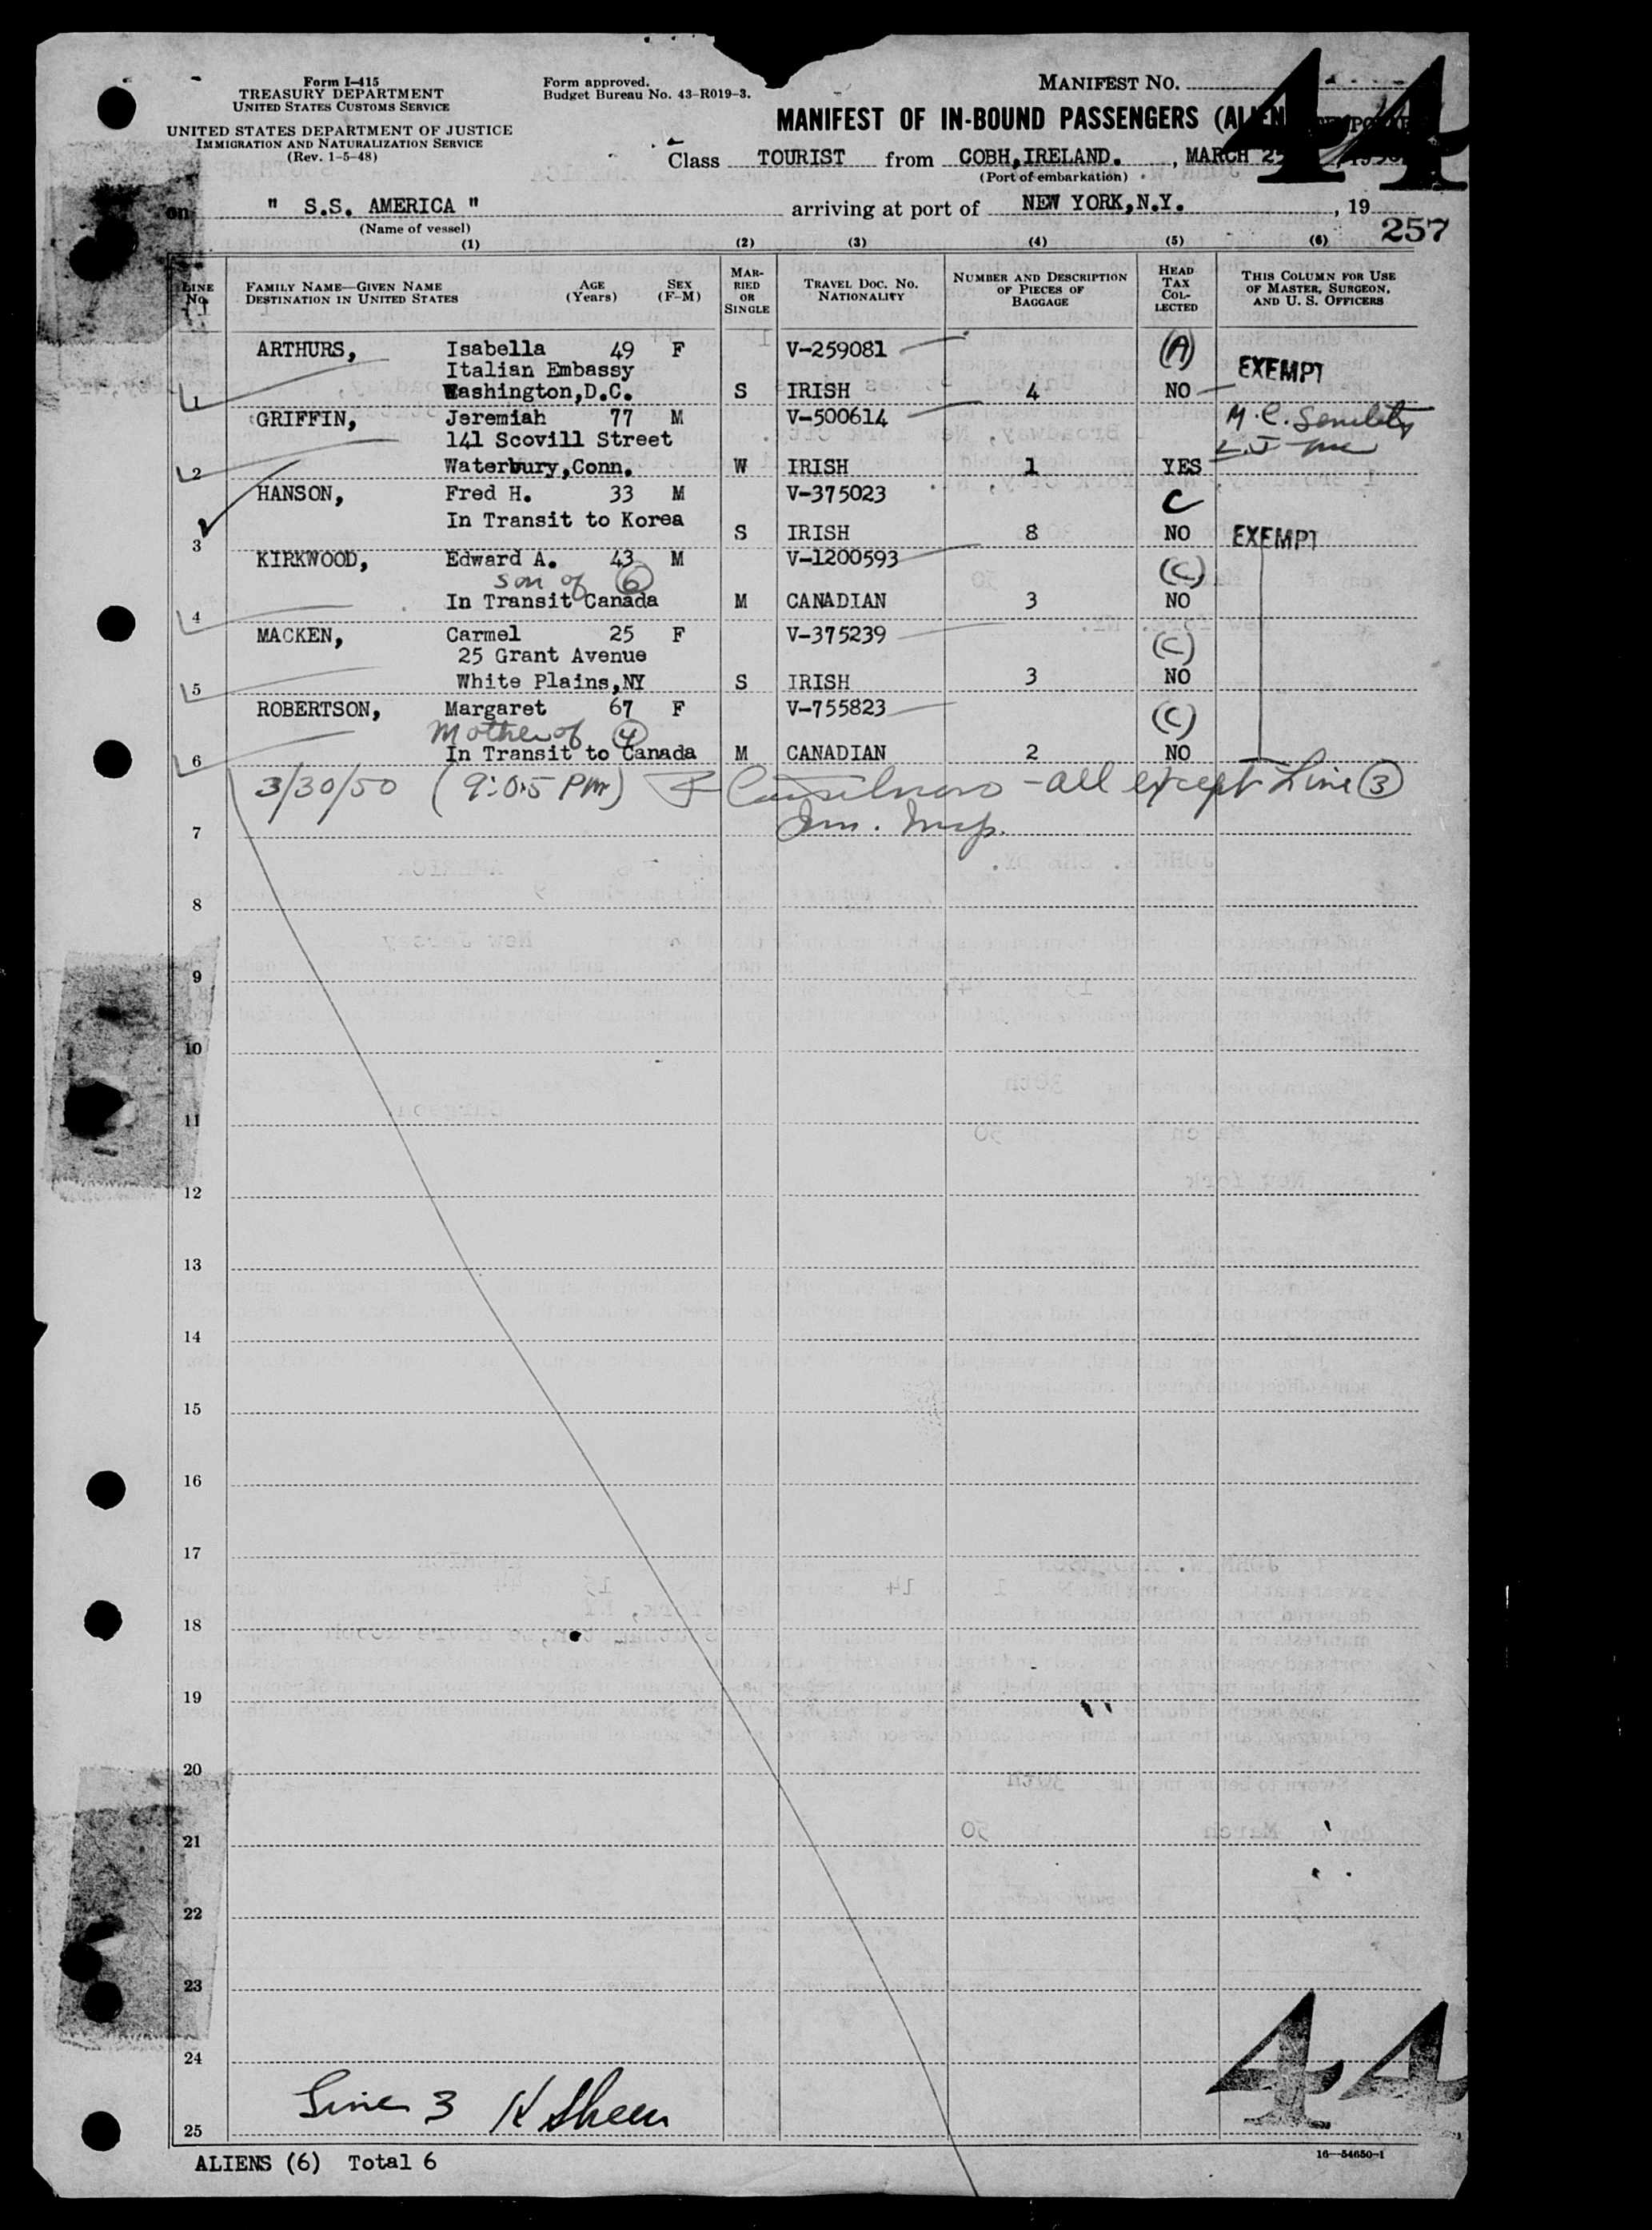 Form I-415
TREASURY DEPARTMENT
UNITED STATES CUSTOMS SERVICE
UNITED STATES DEPARTMENT OF JUSTICE
IMMIGRATION AND NATURALIZATION SERVICE
(Rev. 1-5-48)
Form approved.
Budget Bureau No. 43-R019-3.
MANIFEST NO.
44
MANIFEST OF IN-BOUND PASSENGERS (ALIEN
Class TOURIST from COBH, IRELAND. , MARCH
(Port of embarkation)
on " S.S. AMERICA " arriving at port of NEW YORK, N.Y. , 19
(Name of vessel)
257
(1) (2) (3) (4) (5) (6)
LINE No. FAMILY NAME—GIVEN NAME DESTINATION IN UNITED STATES AGE (Years) SEX (F-M) MARRIED OR SINGLE TRAVEL DOC. NO. NATIONALITY NUMBER AND DESCRIPTION OF PIECES OF BAGGAGE HEAD TAX COLLECTED THIS COLUMN FOR USE OF MASTER, SURGEON, AND U. S. OFFICERS
ARTHURS, Isabella 49 F V-259081 (A)
Italian Embassy EXEMPT
1 Washington, D.C. S IRISH 4 NO
GRIFFIN, Jeremiah 77 M V-500614 M.C.
141 Scovill Street
2 Waterbury, Conn. W IRISH 1 YES
HANSON, Fred H. 33 M V-375023 C
In Transit to Korea
3 S IRISH 8 NO EXEMPT
KIRKWOOD, Edward A. 43 M V-1200593
son of 6 (C)
4 In Transit Canada M CANADIAN 3 NO
MACKEN, Carmel 25 F V-375239 (C)
25 Grant Avenue
5 White Plains, NY S IRISH 3 NO
ROBERTSON, Margaret 67 F V-755823 (C)
Mother of 4
6 In Transit to Canada M CANADIAN 2 NO
3/30/50 (9:05 PM) - all except Line 3
7 Im. Insp.
8
9
10
11
12
13
14
15
16
17
18
19
20
21
22
23
24
44
Line 3 K Sheen
25
ALIENS (6) Total 6
16—54650-1